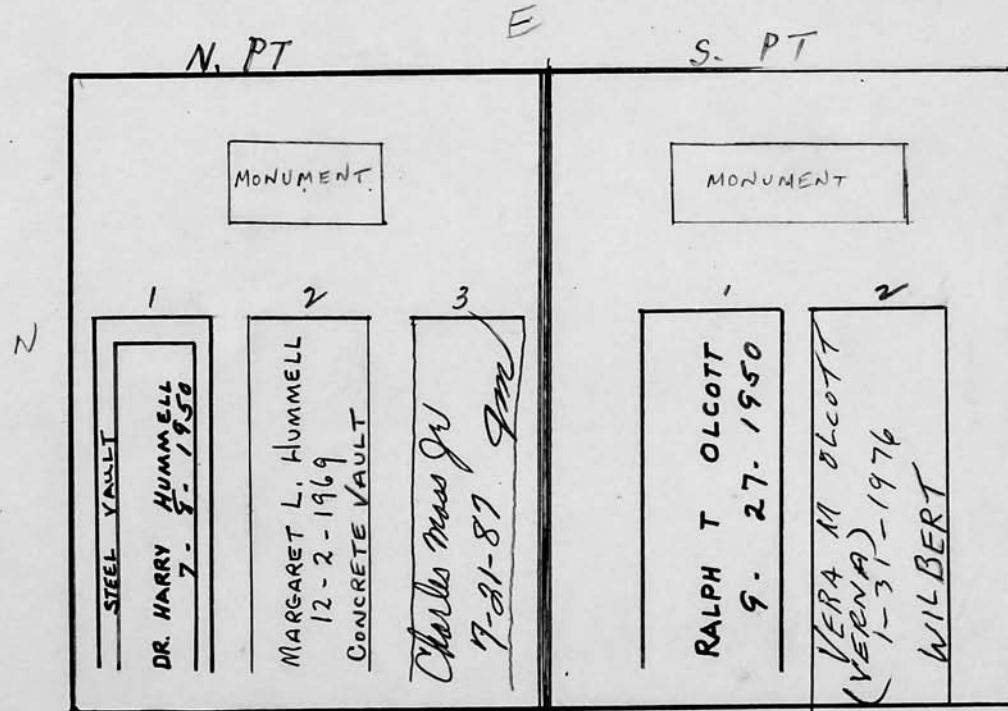 E
N. PT
S. PT
MONUMENT
MONUMENT
N
1
STEEL VAULT
DR. HARRY HUMMELL
7- 8- 1950
2
MARGARET L. HUMMELL
12-2-1969
CONCRETE VAULT
3
Charles Moss Jr
7-21-87
1
RALPH T OLCOTT
9- 27- 1950
2
VERA M OLCOTT
(VERNA)
1-31-1976
WILBERT